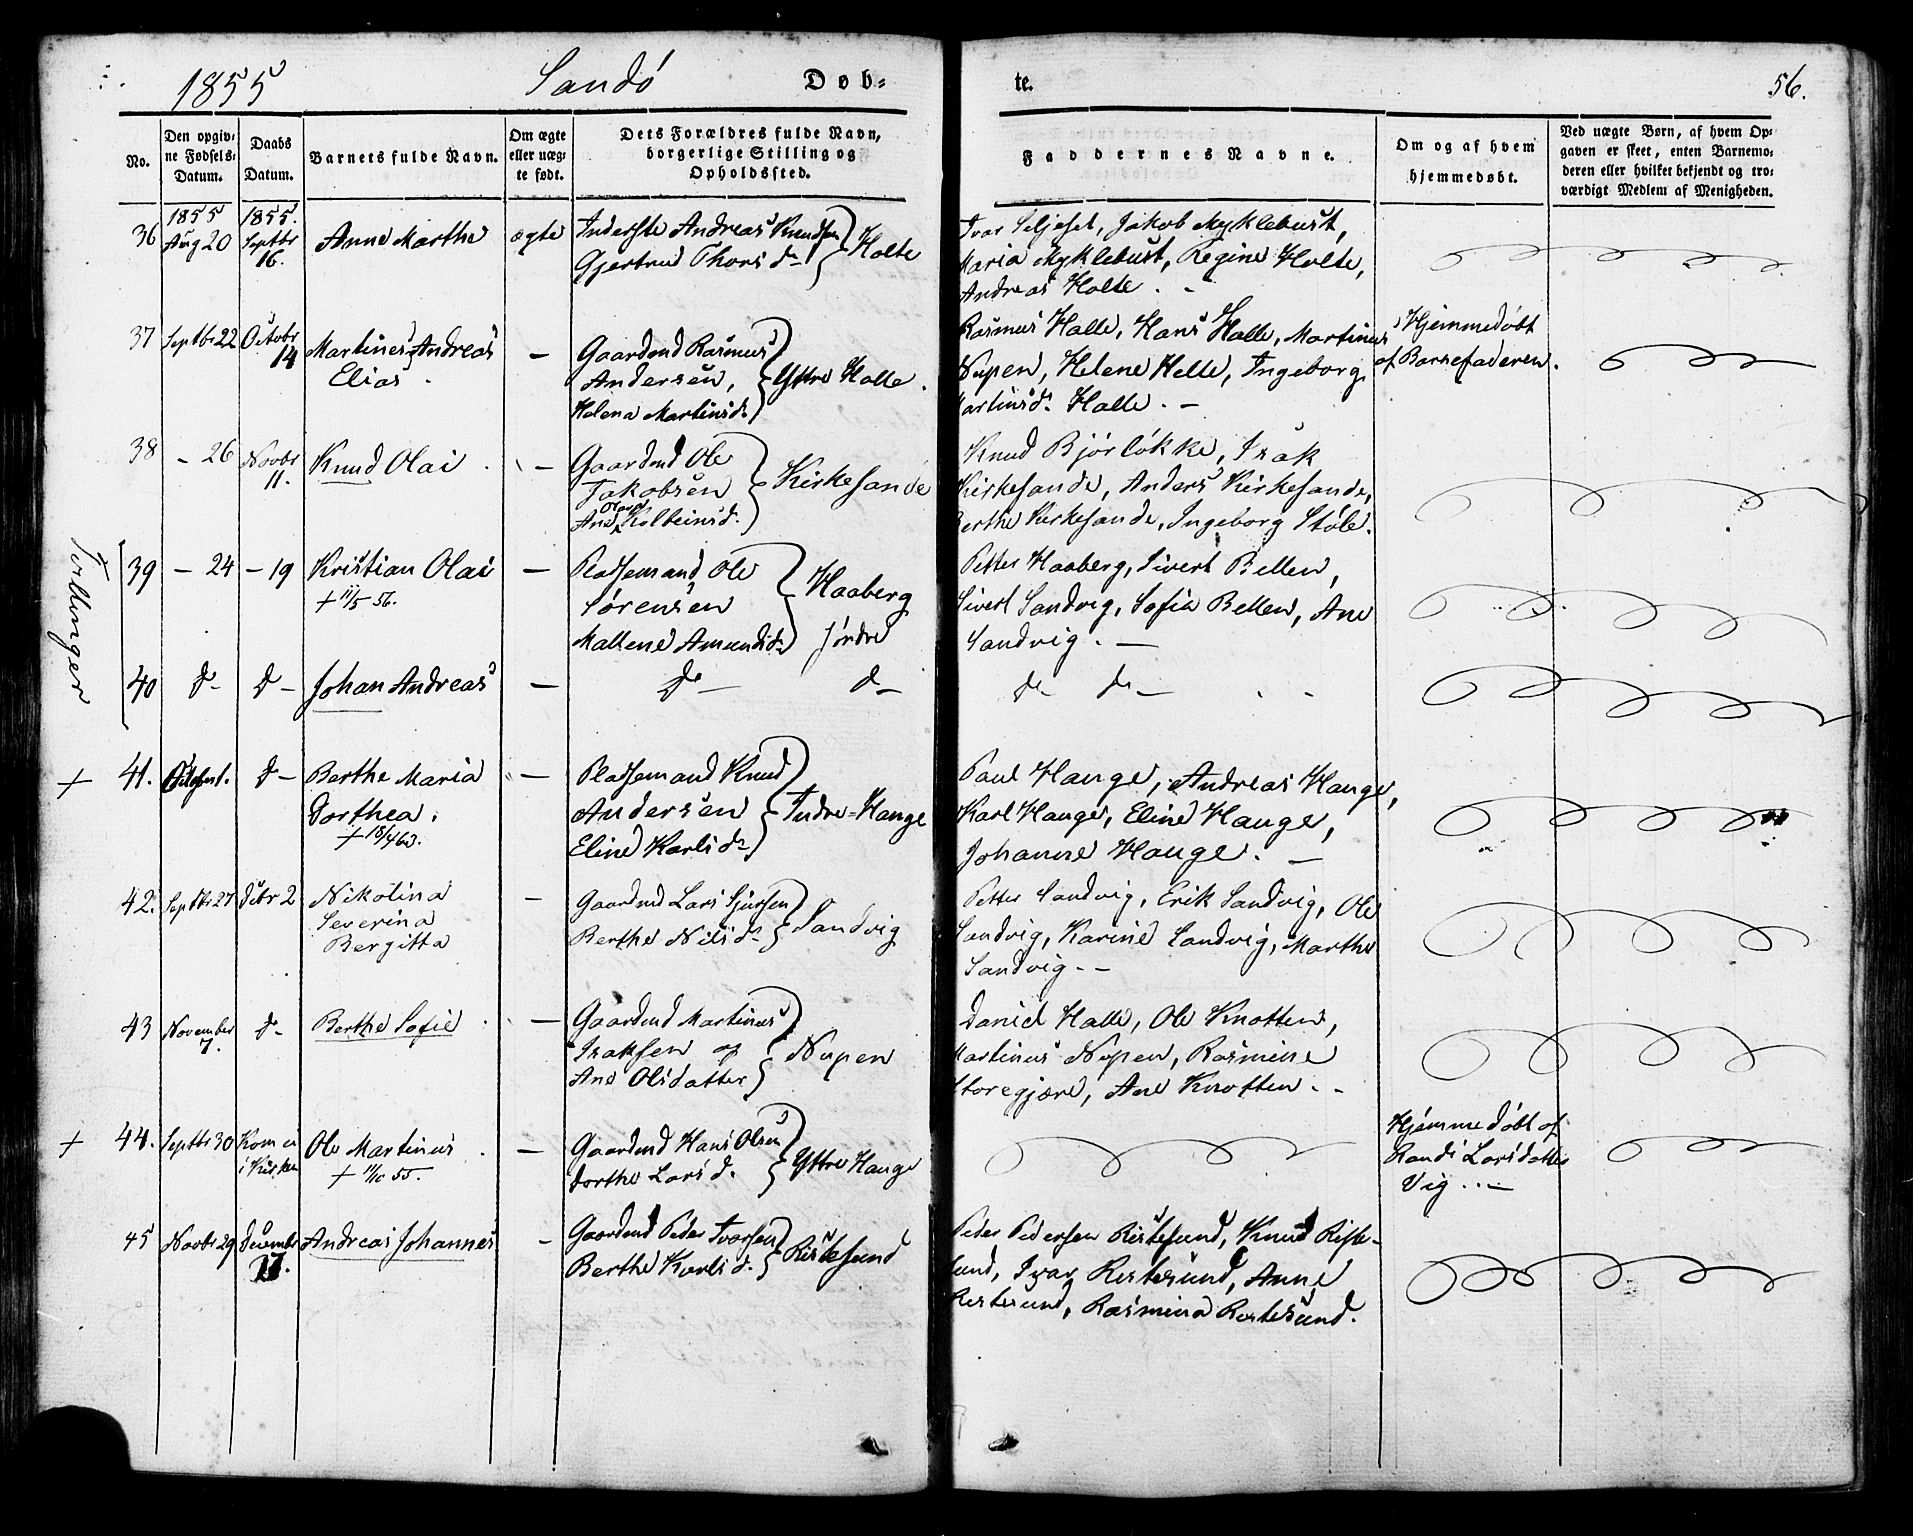 1855 Sandö Døb-
No.
Den opgivne Fødsels-Datum.
Daabs Datum.
Barnets fulde Navn.
Om ægte eller uægte født.
Dets Forældres fulde Navn, borgerlige Stilling og Opholdssted.
36 1855 Aug 20 1855. Septbr 16. Anne Marthe ægte Inderste Andreas Knudsen Gjertrud Thorsd. Holte
37 Septbr 22 Octobr 14 Martines Andreas Elias. — Gaardmd Rasmus Andersen, Helena Martinsd. Yttre Halle.
38 — 26 Novbr 11. Knud Olai — Gaardmd Ole Jakobsen Ane Olava Kolbeinsd. Kirkesande
Tvillinger
39 — 24 — 19 Kristian Olai + 11/5 56. — Pladsemand Ole Sörensen Mallene Amundsd. Haaberg
40 d- d- Johan Andreas — d- d-
+ 41. d- Berthe Maria Dorthea. + 18/4 63. — Pladsemand Knud Andersen Eline Karlsd. Indre-Hauge
42. Septbr 27 Debr 2 Nikolina Severina Bergitta — Gaardmd Lars Sjursen Berthe Nilsd. Sandvig
43 November 7. d- Berthe Sofie — Gaardmd Martinus Isaksen og Ane Olsdatter Nupen
+ 44. Septbr 30 Kom ei i Kirken Ole Martinus + 11/10 55. — Gaardmd Hans Olsen Dorthe Larsd. Yttre Hauge
45 Novbr 29 Decembr 27. Andreas Johannes — Gaardmd Peder Ivarsen Berthe Karlsd. Ristesund
te. 56.
Faddernes Navne.
Om og af hvem hjemmedøbt.
Ved uægte Børn, af hvem Opgaven er skeet, enten Barnemoderen eller hvilket bekjendt og troværdigt Medlem af Menigheden.
Ivar Seljeset, Jakob Myklebust,
Maria Myklebust, Regine Holte,
Andreas Holte. -
Rasmus Halle, Hans Halle, Martinus
Nupen, Helene Helle, Ingeborg
Martinsd. Halle. —
Hjemmedöbt
af Barnefaderen.
Knud Bjørlökke, Isak
Kirkesande, Anders Kirkesande,
Berthe Kirkesande, Ingeborg Støle.
Petter Haaberg, Sivert Bellen,
Sivert Sandvig, Sofia Bellen, Ane
Sandvig. —
d- d-
Paul Hauge, Andreas Hauge,
Karl Hauge, Eline Hauge,
Johanne Hauge. —
Petter Sandvig, Erik Sandvig, Ole
Sandvig, Karine Sandvig, Marthe
Sandvig. -
Daniel Halle, Ole Knotten,
Martinus Nupen, Rasmine
Storegjære, Ane Knotten. -
Hjemmedöbt af
Randi Larsdatter
Vig. . —
Peder Pedersen Ristesund, Knud Riste-
sund, Ivar Ristesund, Anne
Ristesund, Rasmina Ristesund.